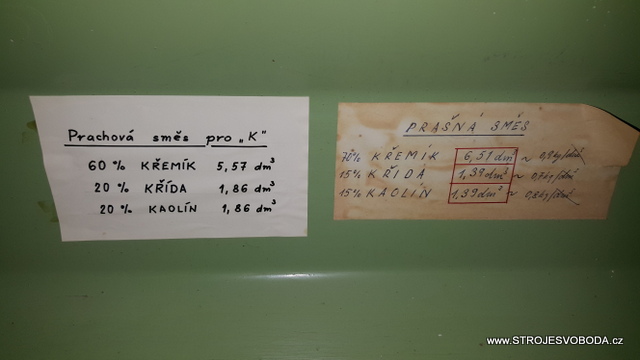 Prachová směs pro „K"
60 % KŘEMÍK 5,57 dm³
20 % KŘÍDA 1,86 dm³
20 % KAOLÍN 1,86 dm³
PRAŠNÁ SMĚS
70% KŘEMÍK 6,51 dm³ ~
15% KŘÍDA 1,39 dm³ ~
15% KAOLÍN 1,39 dm³ ~
www.STROJESVOBODA.cz